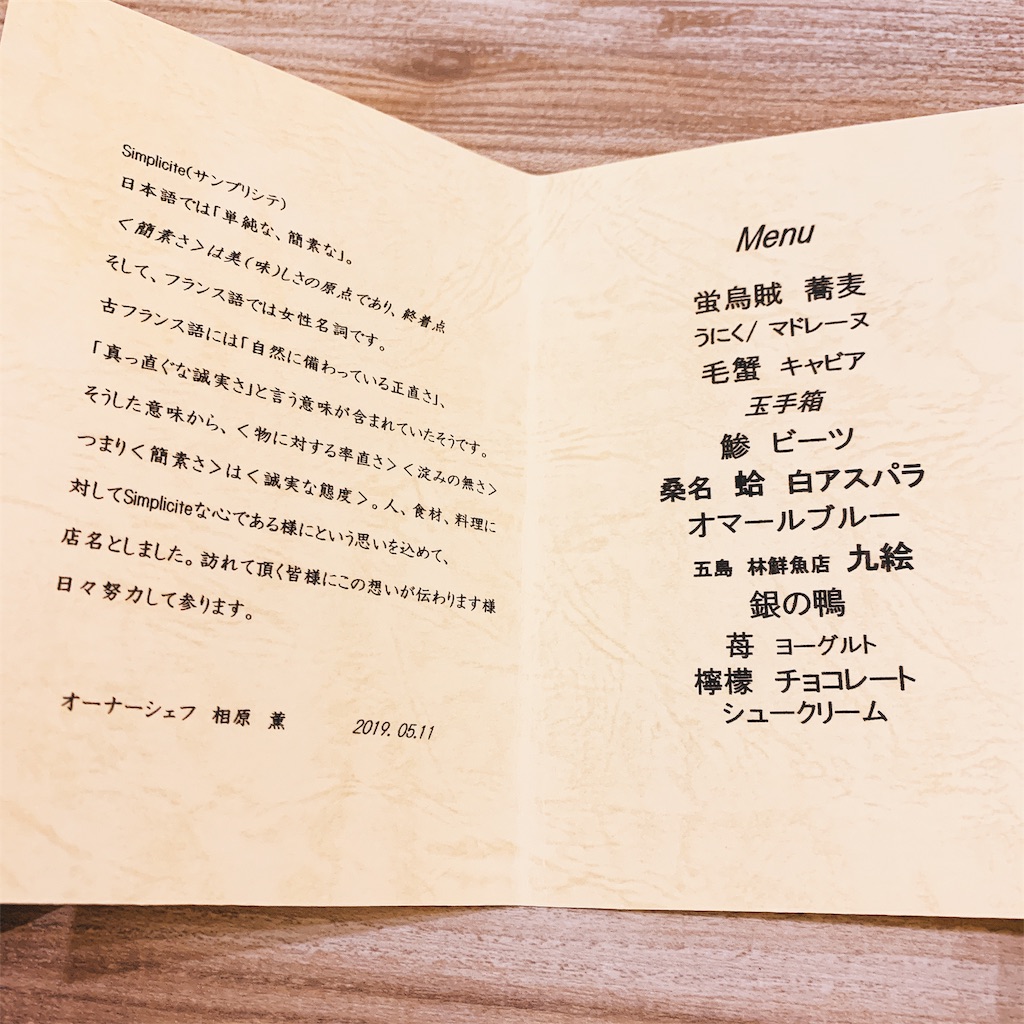 Simplicite(サンプリシテ)
日本語では「単純な、簡素な」。
<簡素さ>は美(味)しさの原点であり、終着点
そして、フランス語では女性名詞です。
古フランス語には「自然に備わっている正直さ」、
「真っ直ぐな誠実さ」と言う意味が含まれていたそうです。
そうした意味から、<物に対する率直さ><淀みの無さ>
つまり<簡素さ>は<誠実な態度>。人、食材、料理に
対してSimpliciteな心である様にという思いを込めて、
店名としました。訪れて頂く皆様にこの想いが伝わります様
日々努力して参ります。
オーナーシェフ 相原 薫 2019.05.11
Menu
蛍烏賊 蕎麦
うにく/ マドレーヌ
毛蟹 キャビア
玉手箱
鯵 ビーツ
桑名 蛤 白アスパラ
オマールブルー
五島 林鮮魚店 九絵
銀の鴨
苺 ヨーグルト
檸檬 チョコレート
シュークリーム